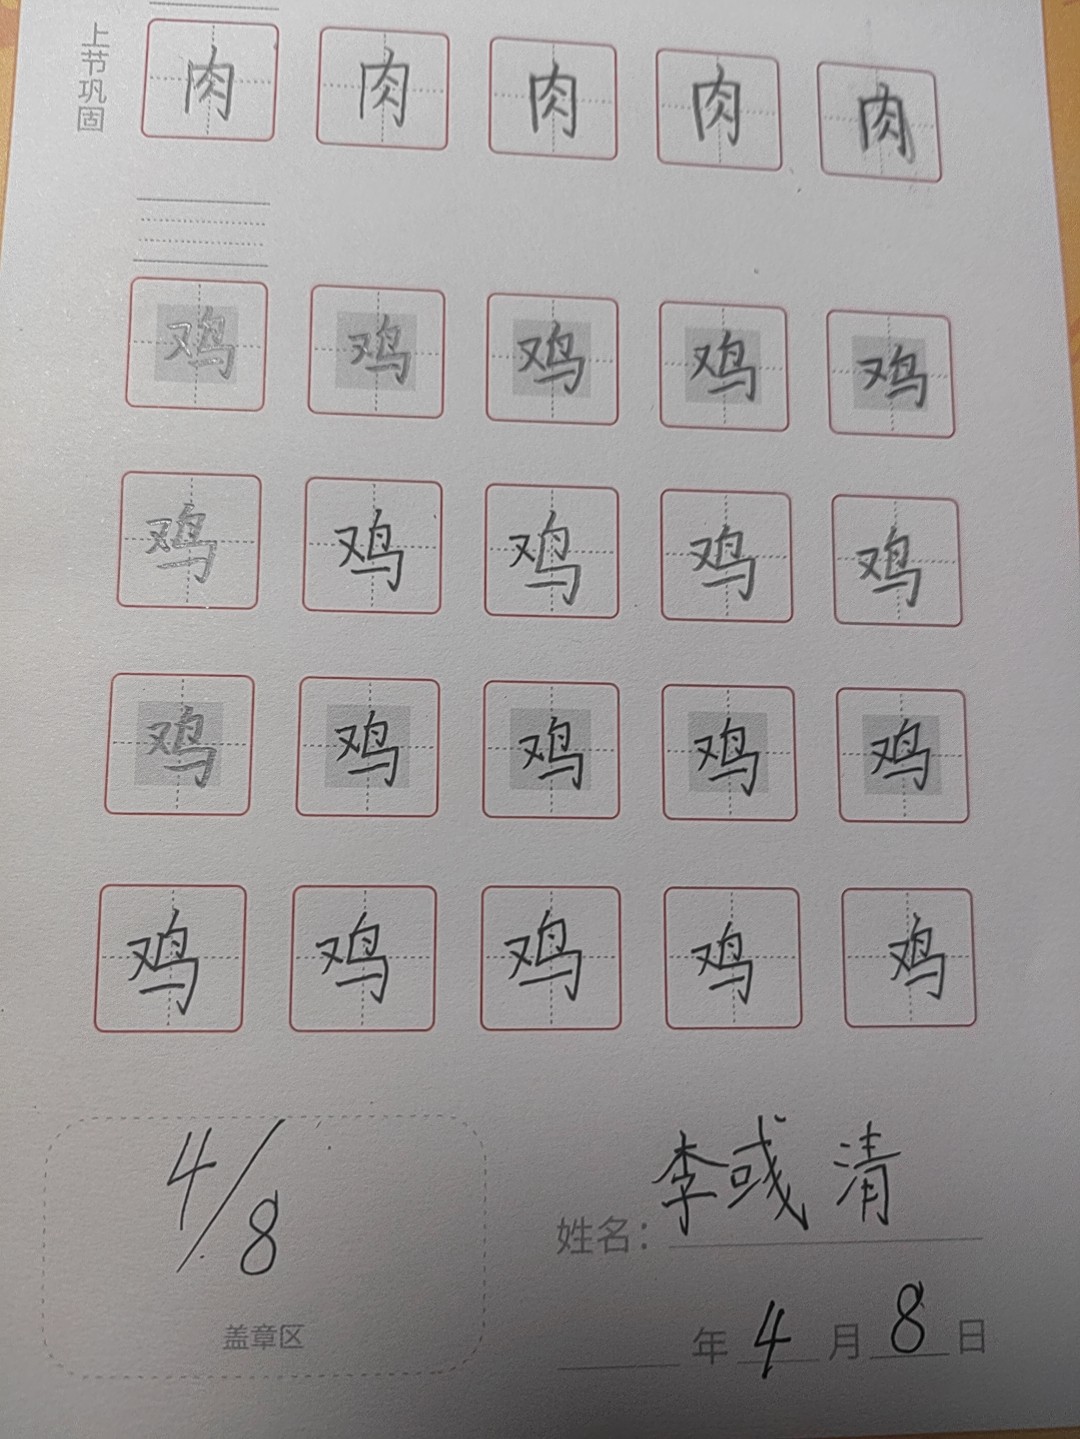 上节巩固
肉 肉 肉 肉 肉
鸡 鸡 鸡 鸡 鸡
鸡 鸡 鸡 鸡 鸡
鸡 鸡 鸡 鸡 鸡
鸡 鸡 鸡 鸡 鸡
4/8
盖章区
姓名：李彧清
年 4 月 8 日